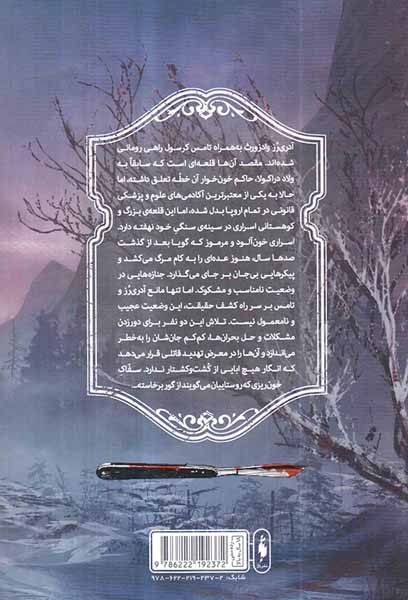 آدری‌رُز وادزورث به‌همراه تامس کرسول راهی رومانی
شده‌اند. مقصد آن‌ها قلعه‌ای است که سابقاً به
ولاد دراکولا، حاکم خون‌خوار آن خطّه تعلق داشته، اما
حالا به یکی از معتبرترین آکادمی‌های علوم و پزشکی
قانونی در تمام اروپا بدل شده، اما این قلعه‌ی بزرگ و
کوهستانی اسراری در سینه‌ی سنگیِ خود نهفته دارد.
اسراری خون‌آلود و مرموز که گویا بعد از گذشت
صدها سال، هنوز عده‌ای را به کام مرگ می‌کشد و
پیکرهایی بی‌جان بر جای می‌گذارد. جنازه‌هایی در
وضعیت نامناسب و مشکوک. اما تنها مانع آدری‌رُز و
تامس بر سر راه کشف حقیقت، این وضعیت عجیب
و نامعمول نیست. تلاش این دو نفر برای دورزدن
مشکلات و حل بحران‌ها، کم‌کم جان‌شان را به‌خطر
می‌اندازد و آن‌ها را در معرض تهدید قاتلی قرار می‌دهد
که انگار هیچ ابایی از کُشت‌وکشتار ندارد. سفّاک
خون‌ریزی که روستاییان می‌گویند از گور برخاسته...
9 786222 192372
شابک: ۲-۲۳۷-۲۱۹-۶۲۲-۹۷۸